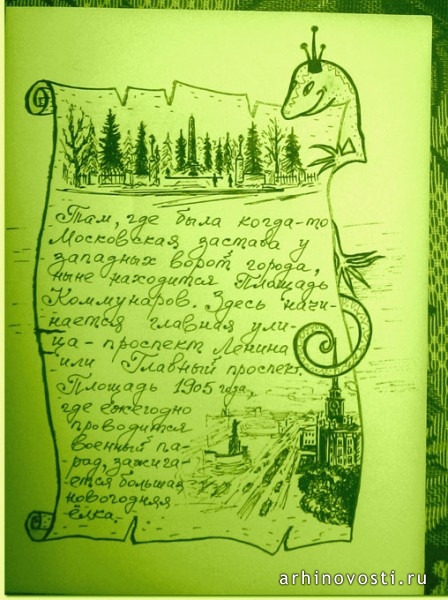 Там, где была когда-то
Московская застава у
западных ворот города,
ныне находится Площадь
Коммунаров. Здесь начи-
нается главная ули-
ца - проспект Ленина
или Главный проспект.
Площадь 1905 года,
где ежегодно
проводится
военный па-
рад, зажига-
ется большая
новогодняя
ёлка.
arhinovosti.ru